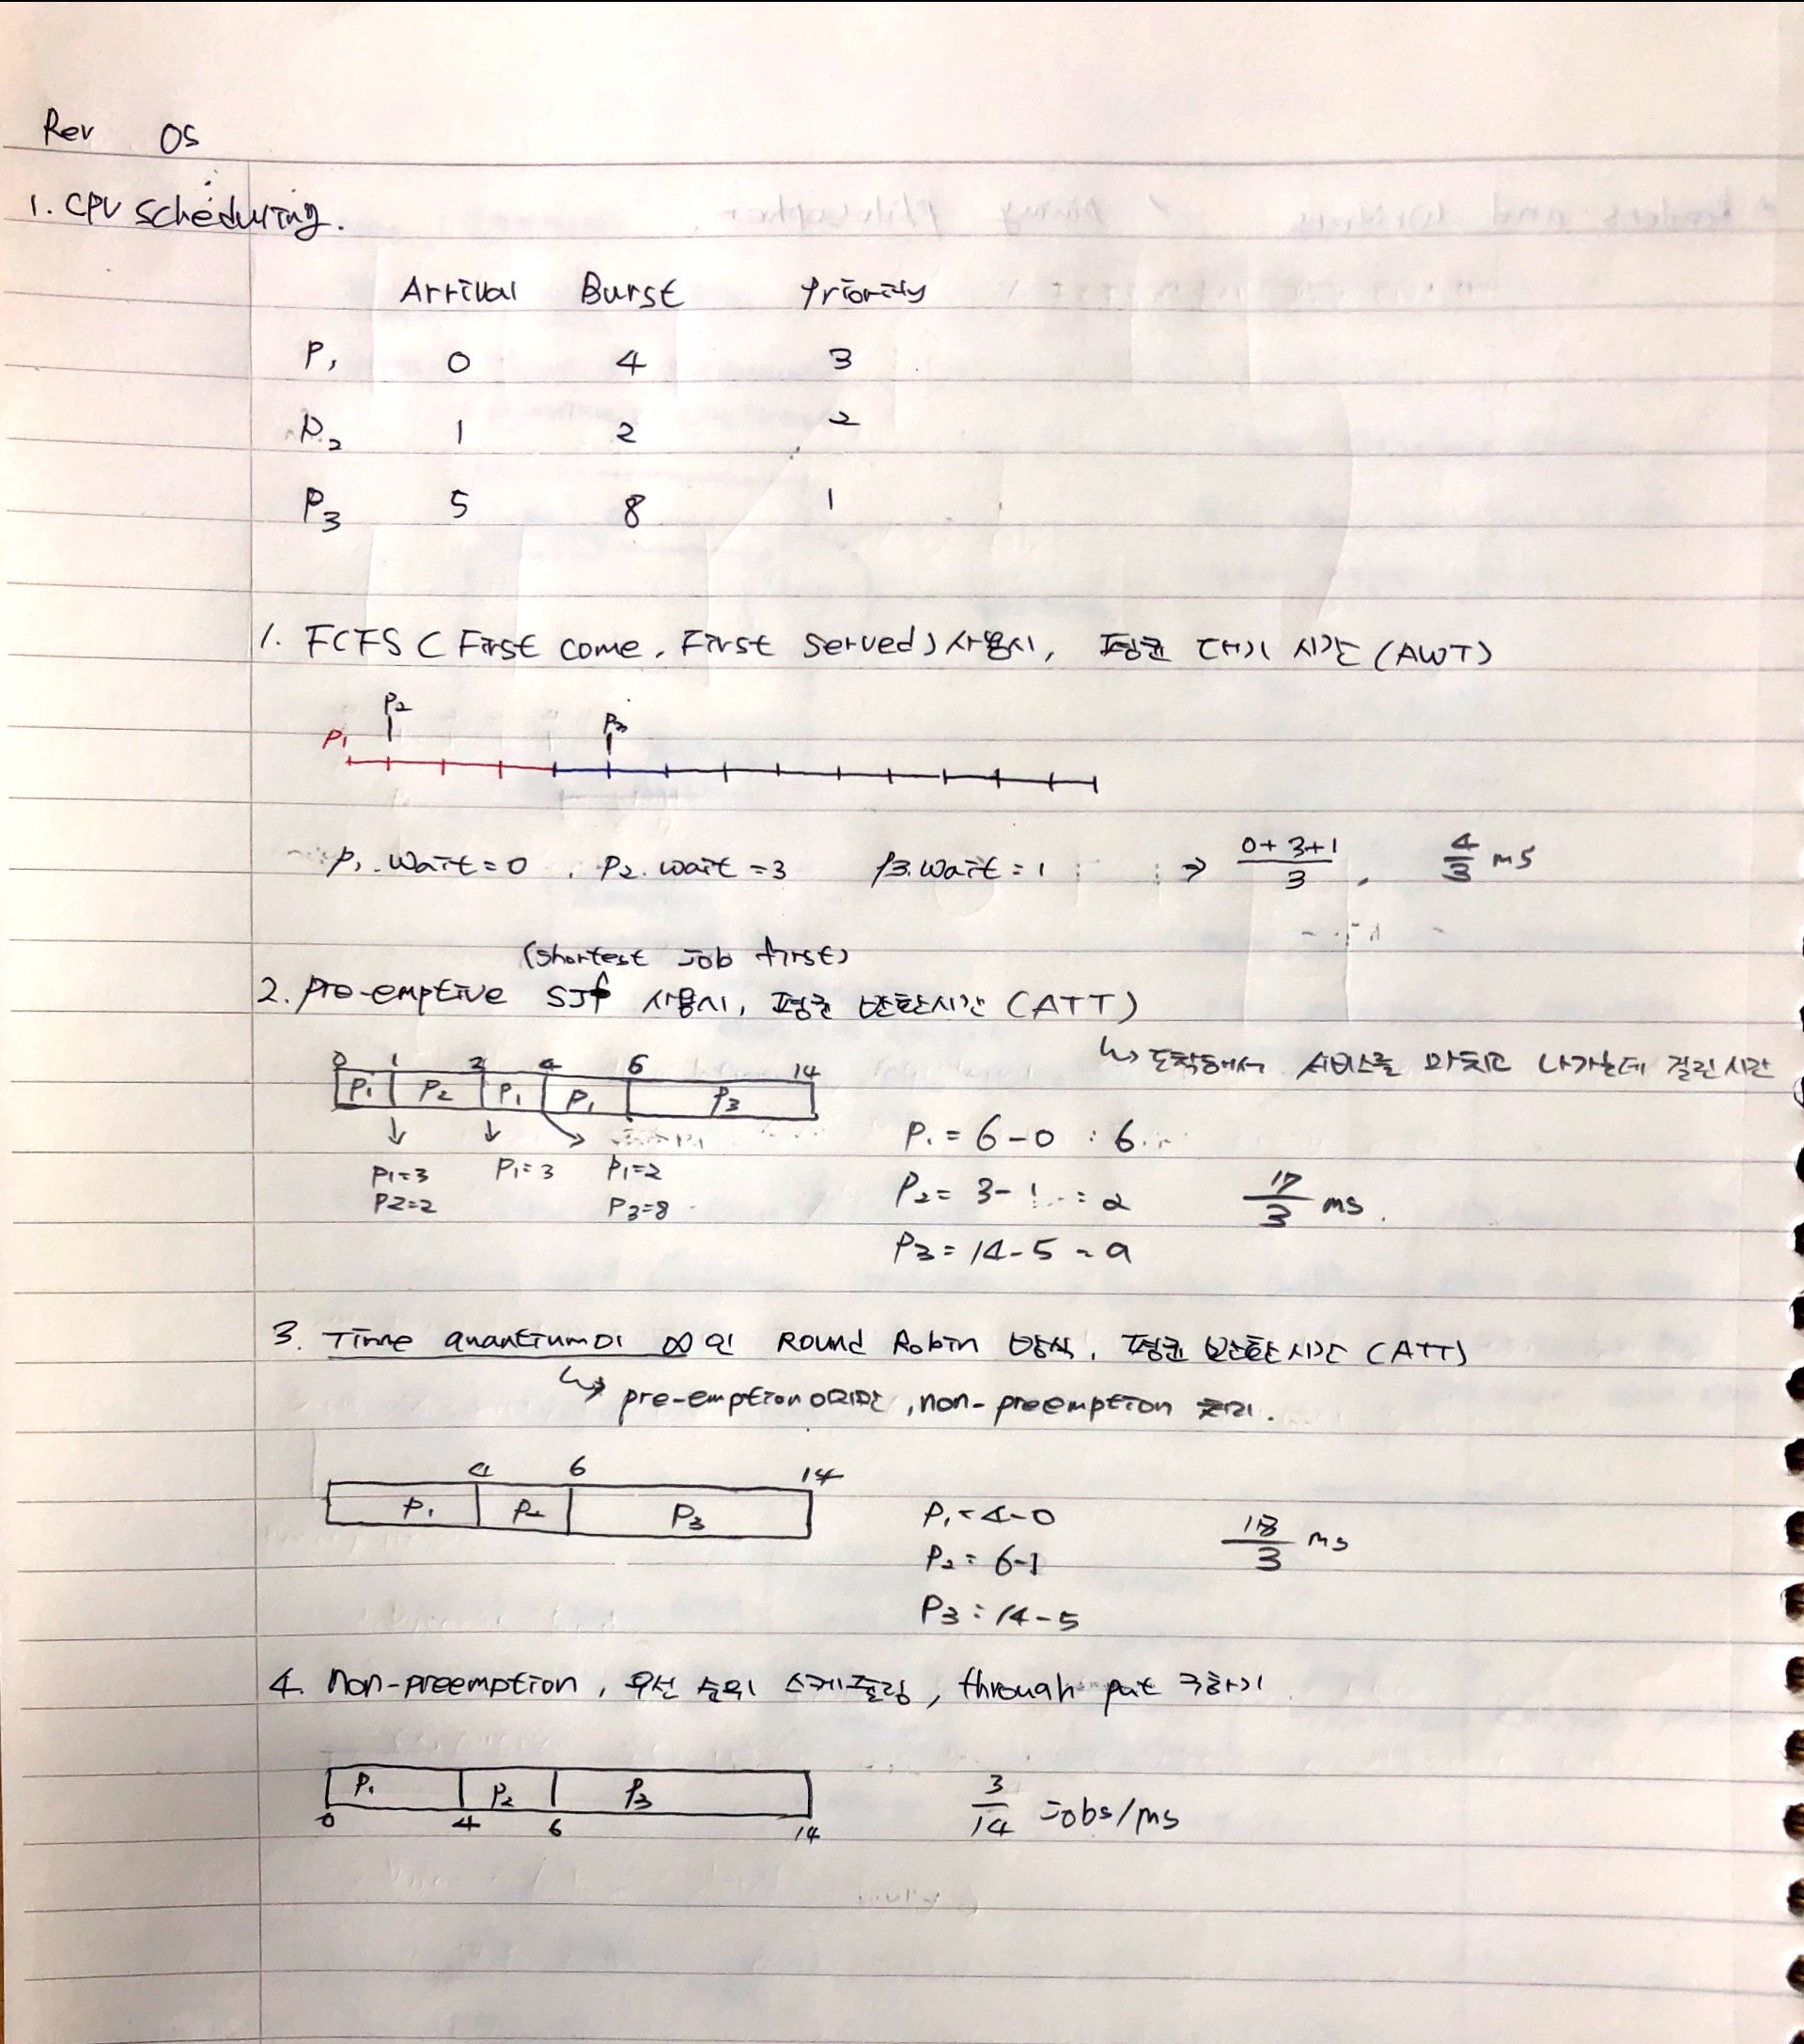 Rev OS
1. CPU scheduling.
Arrival Burst Priority
P1 0 4 3
P2 1 2 2
P3 5 8 1
1. FCFS (First come, First Served) 사용시, 평균 대기 시간 (AWT)
P2
P1 P3
P1.wait=0 , P2.wait=3 P3.wait=1 ⇒ 0+3+1/3 , 4/3 ms
(Shortest Job first)
2. pre-emptive SJf 사용시, 평균 반환시간 (ATT)
↳ 도착해서 서비스를 마치고 나가는데 걸린 시간
0 1 3 4 6 14
P1 P2 P1 P1 P3
P1=3 P1=3 P1=2
P2=2 P3=8
P1=6-0 : 6
P2=3-1 := 2
P3=14-5=9
17/3 ms.
3. Time quantum이 ∞인 Round Robin 방식, 평균 반환시간 (ATT)
↳ pre-emption이지만, non-preemption 논리.
4 6 14
P1 P2 P3
P1=4-0
P2=6-1
P3=14-5
18/3 ms
4. Non-preemption, 우선 순위 스케줄링, through put 구하기
P1 P2 P3
0 4 6 14
3/14 jobs/ms